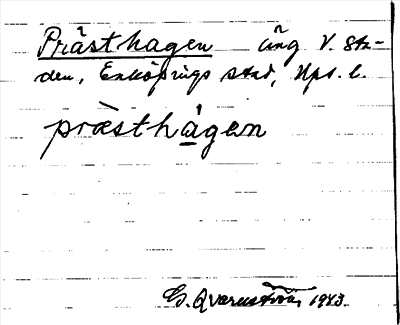 Prästhagen äng V. sta-
den, Enköpings stad, Ups. l.
pràesthá̲gen
G. Qvarnström, 1943.